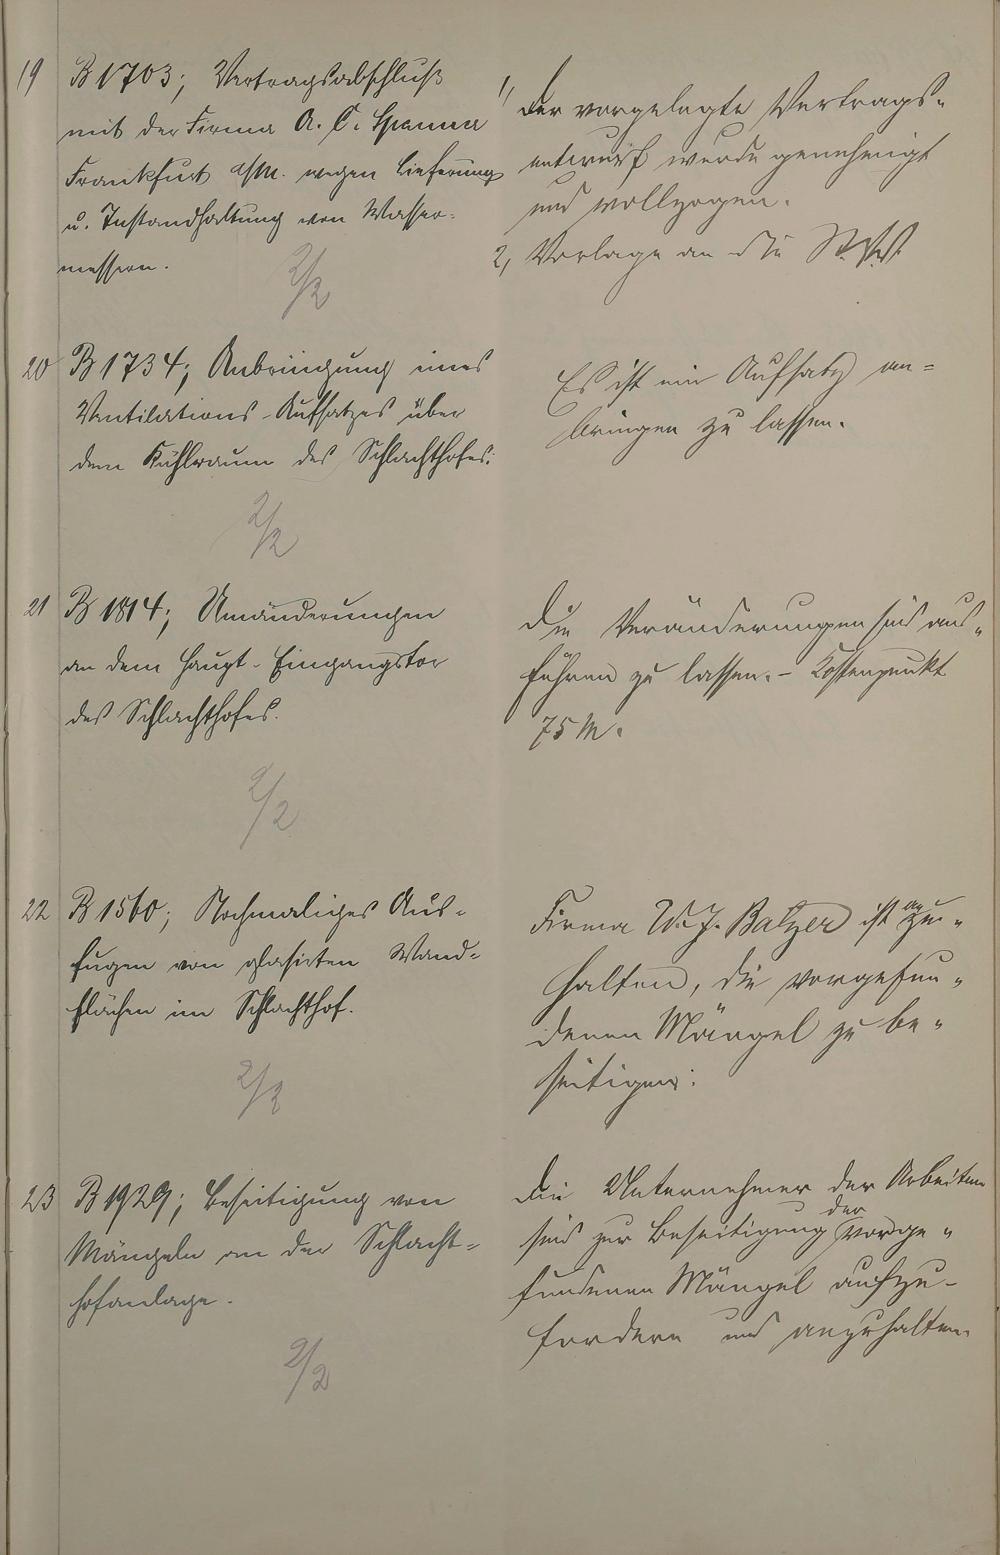 19 B 1703; Vertragsabschluß
mit der Firma A. C. Spanner
Frankfurt a/M. wegen Lieferung
u. Instandhaltung von Wasser-
messern.
2/2
1, Der vorgelegte Vertrags-
entwurf wurde genehmigt
und vollzogen.
2, Vorlage an die
20 B 1734; Anbringung eines
Ventilations-Aufsatzes über
dem Kühlraum des Schlachthofes.
2/2
Es ist ein Aufsatz an-
bringen zu lassen.
21 B 1814; Umänderungen
an dem Haupt-Eingangstor
des Schlachthofes.
2/2
Die Veränderungen sind aus-
führen zu lassen. - Kostenpunkt
75 M.
22 B 1560; Nochmaliges Aus-
fugen von glasirten Wand-
flächen im Schlachthof.
2/2
Firma W. J. Balzer ist anzu-
halten, die vorgefun-
denen Mängel zu be-
seitigen.
23 B 1929; Beseitigung von
Mängeln an der Schlacht-
hofanlage.
2/2
Die Unternehmer der Arbeiten
sind zur Beseitigung der vorge-
fundenen Mängel aufzu-
fordern und anzuhalten.